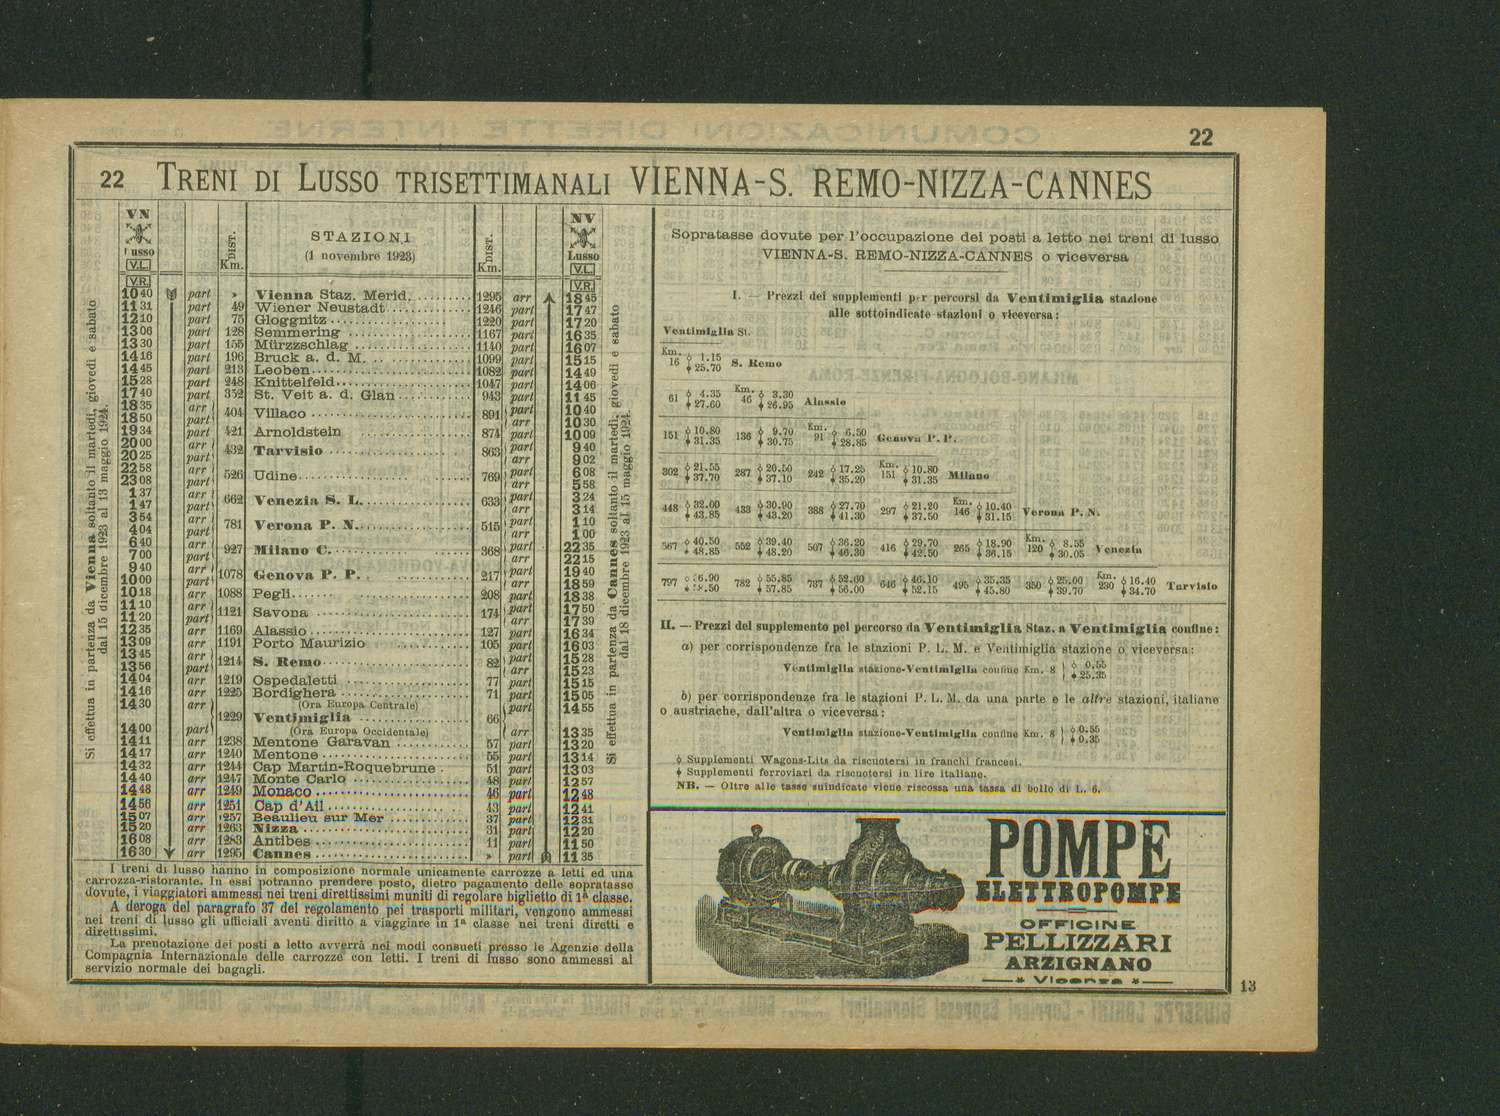 22
22 TRENI DI LUSSO TRISETTIMANALI VIENNA-S. REMO-NIZZA-CANNES
VN Lusso V.L. V.R. DIST. Km. STAZIONI (1 novembre 1923) DIST. Km. NV Lusso V.L. V.R.
Si effettua in partenza da Vienna soltanto il martedì, giovedì e sabato
dal 15 dicembre 1923 al 13 maggio 1924.
10 40 part » Vienna Staz. Merid. 1295 arr 18 45
11 31 part 49 Wiener Neustadt 1246 part 17 47
12 10 part 75 Gloggnitz 1220 part 17 20
13 06 part 128 Semmering 1167 part 16 35
13 30 part 155 Mürzzschlag 1140 part 16 07
14 16 part 196 Bruck a. d. M. 1099 part 15 15
14 45 part 213 Leoben 1082 part 14 49
15 28 part 248 Knittelfeld 1047 part 14 06
17 40 part 352 St. Veit a. d. Glan 943 part 11 45
18 35 arr 404 Villaco 891 part 10 40
18 50 part arr 10 30
19 34 part 421 Arnoldstein 874 part 10 09
20 00 arr 432 Tarvisio 863 part 9 40
20 25 part arr 9 02
22 58 arr 526 Udine 769 part 6 08
23 08 part arr 5 58
1 37 arr 662 Venezia S. L. 633 part 3 24
1 47 part arr 3 14
3 54 arr 781 Verona P. N. 515 part 1 10
4 04 part arr 1 00
6 40 arr 927 Milano C. 368 part 22 35
7 00 part arr 22 15
9 40 arr 1078 Genova P. P. 217 part 19 40
10 00 part arr 18 59
10 18 part 1088 Pegli 208 part 18 38
11 10 arr 1121 Savona 174 part 17 50
11 20 part arr 17 39
12 35 arr 1169 Alassio 127 part 16 34
13 09 arr 1191 Porto Maurizio 105 part 16 03
13 45 arr 1214 S. Remo 82 part 15 28
13 56 part arr 15 23
14 04 arr 1219 Ospedaletti 77 part 15 15
14 16 arr 1225 Bordighera 71 part 15 05
14 30 arr (Ora Europa Centrale) part 14 55
1229 Ventimiglia 66
14 00 part (Ora Europa Occidentale) arr 13 35
14 11 arr 1238 Mentone Garavan 57 part 13 20
14 17 arr 1240 Mentone 55 part 13 14
14 32 arr 1244 Cap Martin-Roquebrune 51 part 13 03
14 40 arr 1247 Monte Carlo 48 part 12 57
14 48 arr 1249 Monaco 46 part 12 48
14 56 arr 1251 Cap d'Ail 43 part 12 41
15 07 arr 1257 Beaulieu sur Mer 37 part 12 31
15 20 arr 1263 Nizza 31 part 12 20
16 08 arr 1283 Antibes 11 part 11 50
16 30 arr 1295 Cannes » part 11 35
Si effettua in partenza da Cannes soltanto il martedì, giovedì e sabato
dal 18 dicembre 1923 al 15 maggio 1924.
I treni di lusso hanno in composizione normale unicamente carrozze a letti ed una
carrozza-ristorante. In essi potranno prendere posto, dietro pagamento delle sopratasse
dovute, i viaggiatori ammessi nei treni direttissimi muniti di regolare biglietto di 1ª classe.
A deroga del paragrafo 37 del regolamento pei trasporti militari, vengono ammessi
nei treni di lusso gli ufficiali aventi diritto a viaggiare in 1ª classe nei treni diretti e
direttissimi.
La prenotazione dei posti a letto avverrà nei modi consueti presso le Agenzie della
Compagnia Internazionale delle carrozze con letti. I treni di lusso sono ammessi al
servizio normale dei bagagli.
Sopratasse dovute per l'occupazione dei posti a letto nei treni di lusso
VIENNA-S. REMO-NIZZA-CANNES o viceversa
I. — Prezzi dei supplementi per percorsi da Ventimiglia stazione
alle sottoindicate stazioni o viceversa:
Ventimiglia St.
Km. 16 1.15 25.70 S. Remo
61 4.35 27.60 Km. 46 3.30 26.95 Alassio
151 10.80 31.35 136 9.70 30.75 Km. 91 6.50 28.85 Genova P. P.
302 21.55 37.70 287 20.50 37.10 242 17.25 35.20 Km. 151 10.80 31.35 Milano
448 32.00 43.85 433 30.90 43.20 388 27.70 41.30 297 21.20 37.50 Km. 146 10.40 31.15 Verona P. N.
567 40.50 48.85 552 39.40 48.20 507 36.20 46.30 416 29.70 42.50 265 18.90 36.15 Km. 120 8.55 30.05 Venezia
797 782 55.85 57.85 737 52.60 56.00 646 46.10 52.15 495 35.35 45.80 350 25.00 39.70 Km. 230 16.40 34.70 Tarvisio
II. — Prezzi del supplemento pel percorso da Ventimiglia Staz. a Ventimiglia confine:
a) per corrispondenze fra le stazioni P. L. M. e Ventimiglia stazione o viceversa:
Ventimiglia stazione-Ventimiglia confine Km. 8 0.55 25.35
b) per corrispondenze fra le stazioni P. L. M. da una parte e le altre stazioni, italiane
o austriache, dall'altra o viceversa:
Ventimiglia stazione-Ventimiglia confine Km. 8 0.55 0.35
Supplementi Wagons-Lits da riscuotersi in franchi francesi.
Supplementi ferroviari da riscuotersi in lire italiane.
NB. — Oltre alle tasse suindicate viene riscossa una tassa di bollo di L. 6.
POMPE
ELETTROPOMPE
OFFICINE
PELLIZZARI
ARZIGNANO
Vicenza
13